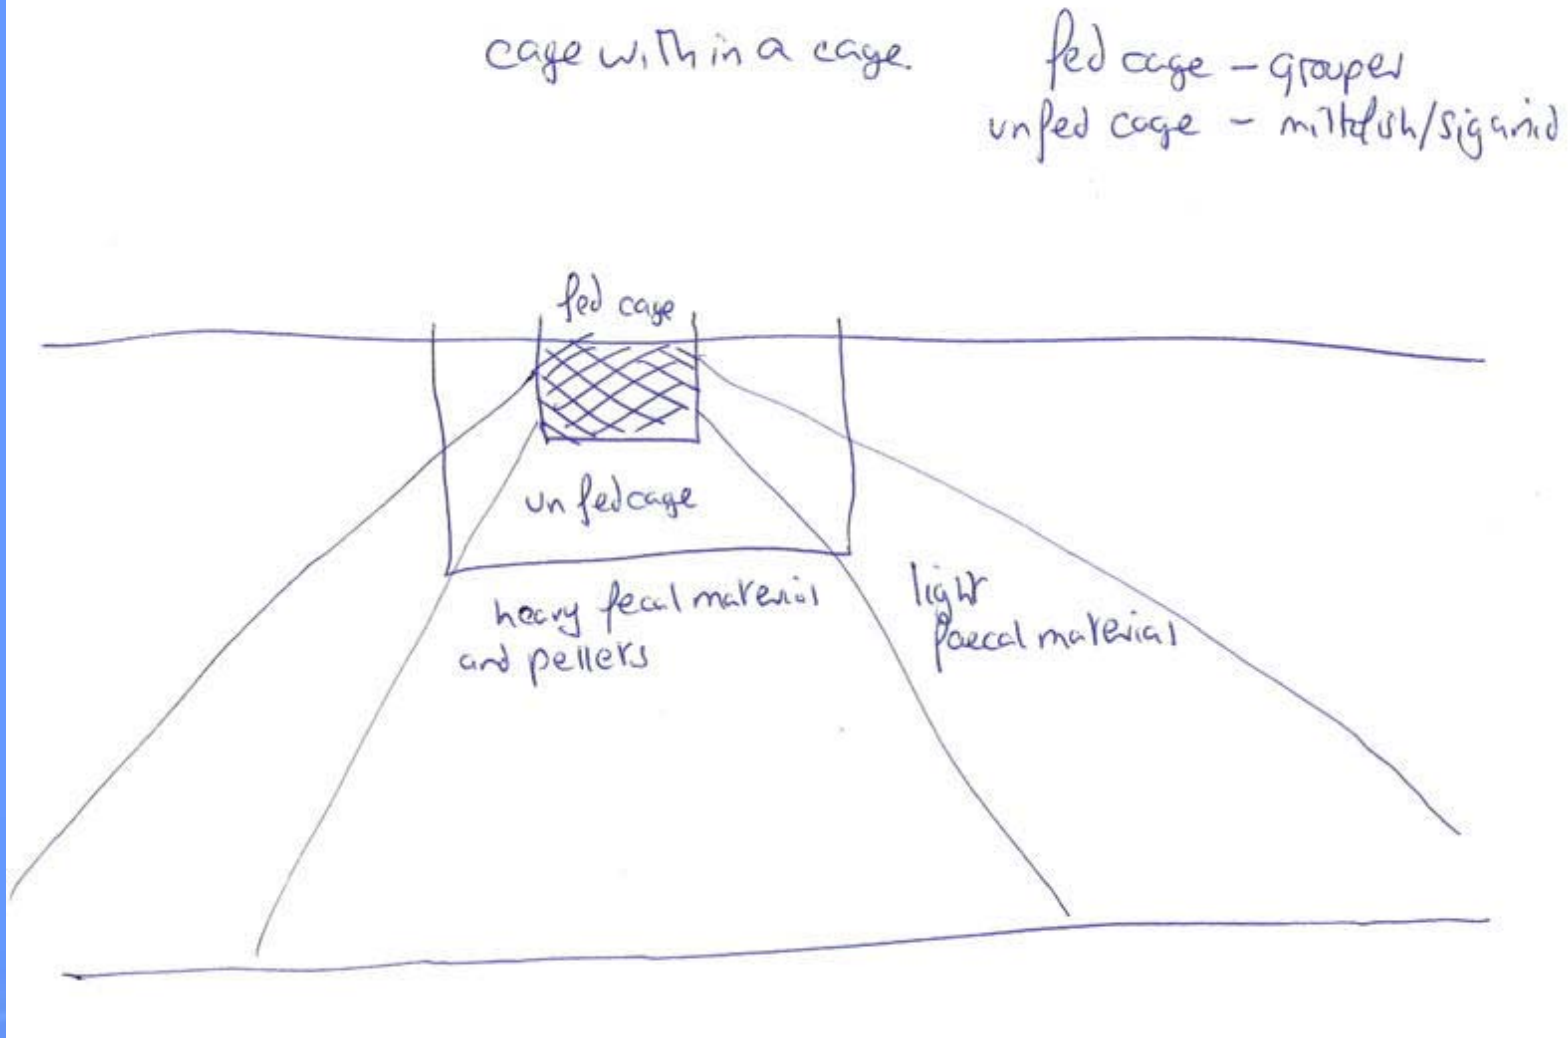 cage within a cage.
fed cage – grouper
unfed cage – milkfish/siganid
fed cage
unfedcage
heavy fecal material
and pellets
light
faecal material